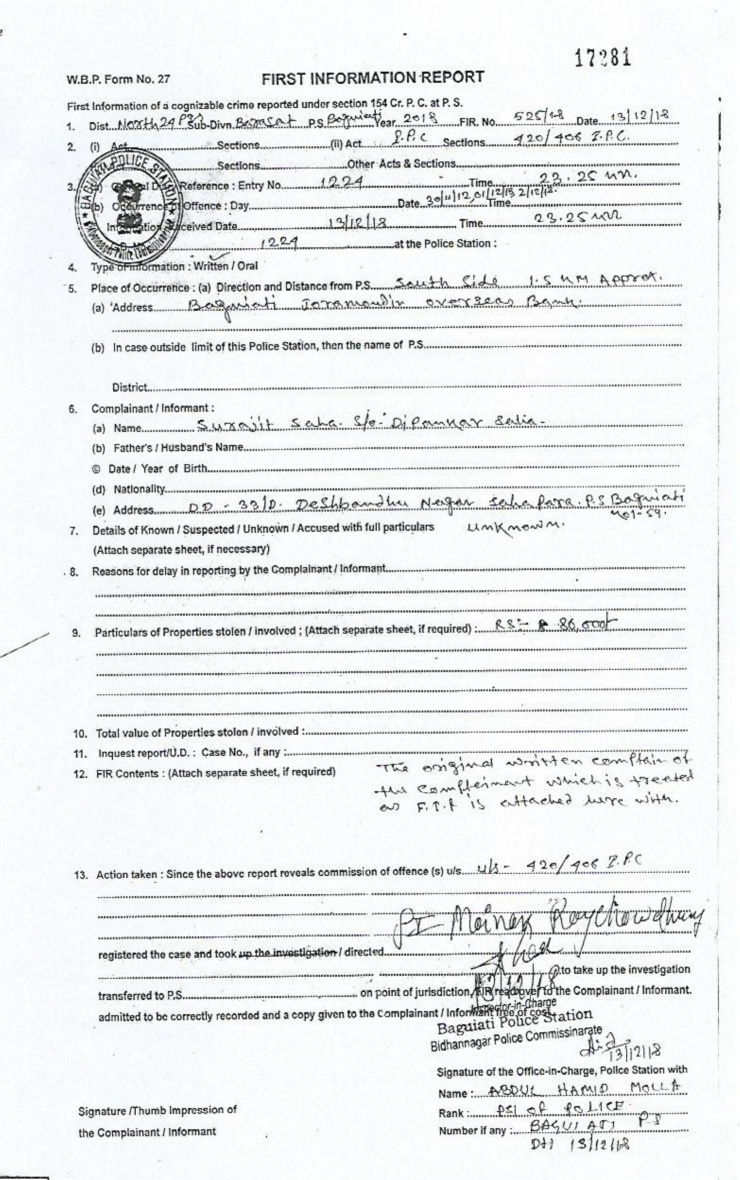 17281
W.B.P. Form No. 27
FIRST INFORMATION REPORT
First Information of a cognizable crime reported under section 154 Cr. P. C. at P. S.
1. Dist. North 24 PGS Sub-Divn. Barasat P.S. Baguiati Year 2018 FIR. No. 525/18 Date 13/12/18
2. (i) Act Sections (ii) Act I.P.C Sections 420/406 I.P.C.
Sections Other Acts & Sections
3. Reference : Entry No. 1224 Time 23.25
(b) Occurrence of Offence : Day Date 30/11/12, 01/12/18 2/12/18 Time
Information Received Date 13/12/18 Time 23.25
1224 at the Police Station :
BAGUIATI POLICE STATION
4. Type of Information : Written / Oral
5. Place of Occurrence : (a) Direction and Distance from P.S. South Side 1.5 KM Approx.
(a) Address Baguiati overseas Bank.
(b) In case outside limit of this Police Station, then the name of P.S.
District
6. Complainant / Informant :
(a) Name Surajit Saha. S/o- Dipankar Saha-
(b) Father's / Husband's Name
© Date / Year of Birth
(d) Nationality
(e) Address DD - 33/D. Deshbandhu Nagar Sahapara. P.S Baguiati
Kol-59.
7. Details of Known / Suspected / Unknown / Accused with full particulars Unknown.
(Attach separate sheet, if necessary)
8. Reasons for delay in reporting by the Complainant / Informant
9. Particulars of Properties stolen / involved ; (Attach separate sheet, if required) : RS:- 86,000/-
10. Total value of Properties stolen / involved :
11. Inquest report/U.D. : Case No., if any :
12. FIR Contents : (Attach separate sheet, if required) The original written complain of
the complainant which is treated
as F.I.R is attached here with.
13. Action taken : Since the above report reveals commission of offence (s) u/s u/s - 420/406 I.P.C
PI Mainak Roychowdhury
registered the case and took up the investigation / directed
to take up the investigation
transferred to P.S. on point of jurisdiction, FIR read over to the Complainant / Informant.
admitted to be correctly recorded and a copy given to the Complainant / Informant free of cost.
Inspector-in-Charge
Baguiati Police Station
Bidhannagar Police Commissinarate
13/12/18
Signature of the Office-in-Charge, Police Station with
Name : ABDUL HAMID MOLLA
Rank : PSI OF POLICE
Number if any : BAGUIATI PS
DT 13/12/18
Signature /Thumb Impression of
the Complainant / Informant